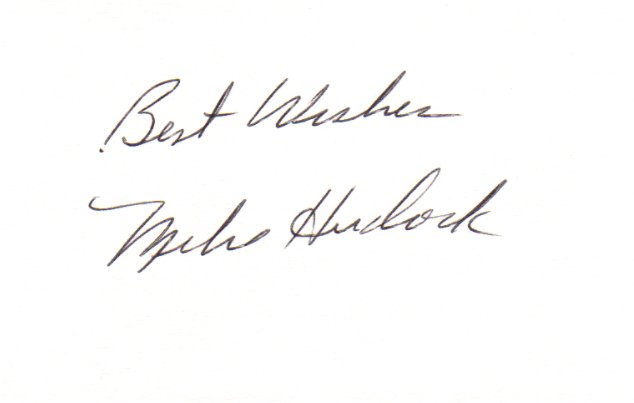 Best Wishes
Mike Hudock